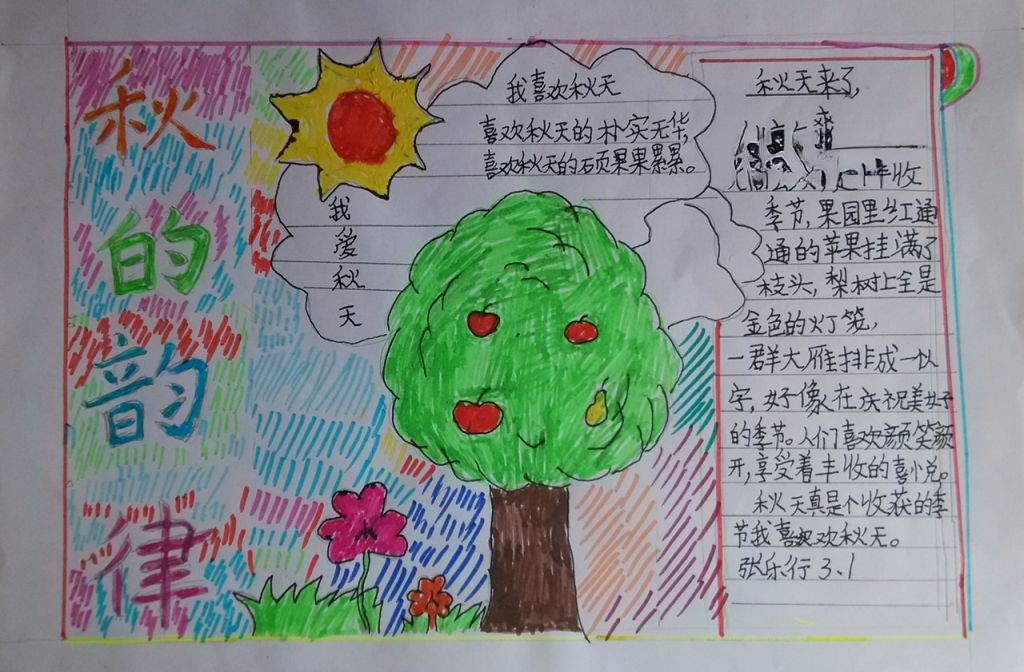 秋
的
韵
律
我喜欢秋天
喜欢秋天的朴实无华,
喜欢秋天的硕果果累累。
我
爱
秋
天
秋天来了,
丰收
季节,果园里红通
通的苹果挂满了
枝头,梨树上全是
金色的灯笼,
一群大雁排成一以
字,好像在庆祝美好
的季节。人们喜欢颜笑颜
开,享受着丰收的喜悦。
秋天真是个收获的季
节我喜欢欢秋天。
张乐行3、1